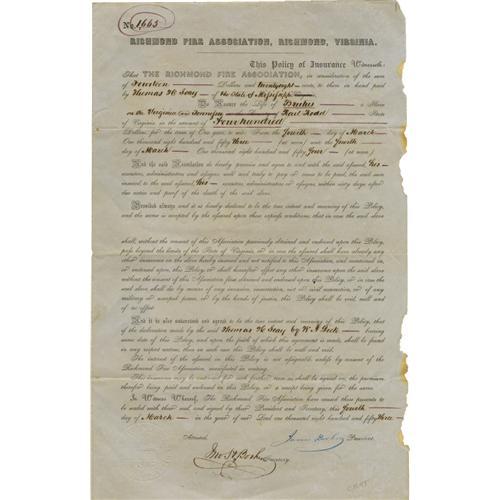 No. 1665
RICHMOND FIRE ASSOCIATION, RICHMOND, VIRGINIA.
This Policy of Insurance Witnesseth:
That THE RICHMOND FIRE ASSOCIATION, in consideration of the sum
of Fourteen Dollars and cents, to them in hand paid
by Thomas H Seay of the State of Mississippi
Do Insure the Life of Brutus a Slave
on the Virginia and Tennessee Rail Road State
of Virginia in the amount of Four hundred
Dollars for the term of One year, to wit: From the Fourth day of March
One thousand eight hundred and fifty Three (at noon) until the Fourth
day of March One thousand eight hundred and fifty Four (at noon.)
And the said Association do hereby promise and agree to and with the said assured, his
executors, administrators and assigns, well and truly to pay or cause to be paid, the said sum
insured to the said assured, his executors, administrators or assigns, within sixty days after
due notice and proof of the death of the said slave.
Provided always and it is hereby declared to be the true intent and meaning of this Policy,
and the same is accepted by the assured upon these express conditions, that in case the said slave
shall, without the consent of this Association previously obtained and endorsed upon this Policy,
pass beyond the limits of the State of Virginia, or in case the assured shall have already any
other insurance on the slave hereby insured and not notified to this Association, and mentioned in,
or endorsed upon, this Policy, or shall hereafter effect any other insurance upon the said slave
without the consent of this Association first obtained and endorsed upon this Policy, or in case the
said slave shall die by means of any invasion, insurrection, riot or civil commotion, or of any
military or usurped power, or by the hands of justice, this Policy shall be void, null and
of no effect.
And it is also understood and agreed to be the true intent and meaning of this Policy, that
if the declaration made by the said Thomas H Seay by W. bearing
same date of this Policy, and upon the faith of which this agreement is made, shall be found
in any respect untrue, then in such case this Policy shall be null and void.
The interest of the assured in this Policy is not assignable unless by consent of the
Richmond Fire Association, manifested in writing.
This insurance may be continued for such further term as shall be agreed on, the premium
therefor being paid and endorsed on this Policy, or a receipt being given for the same.
In Witness Whereof, The Richmond Fire Association have caused these presents to
be sealed with their seal, and signed by their President and Secretary, this Fourth
day of March in the year of our Lord one thousand eight hundred and fifty Three
Attested,
President.
Secretary.